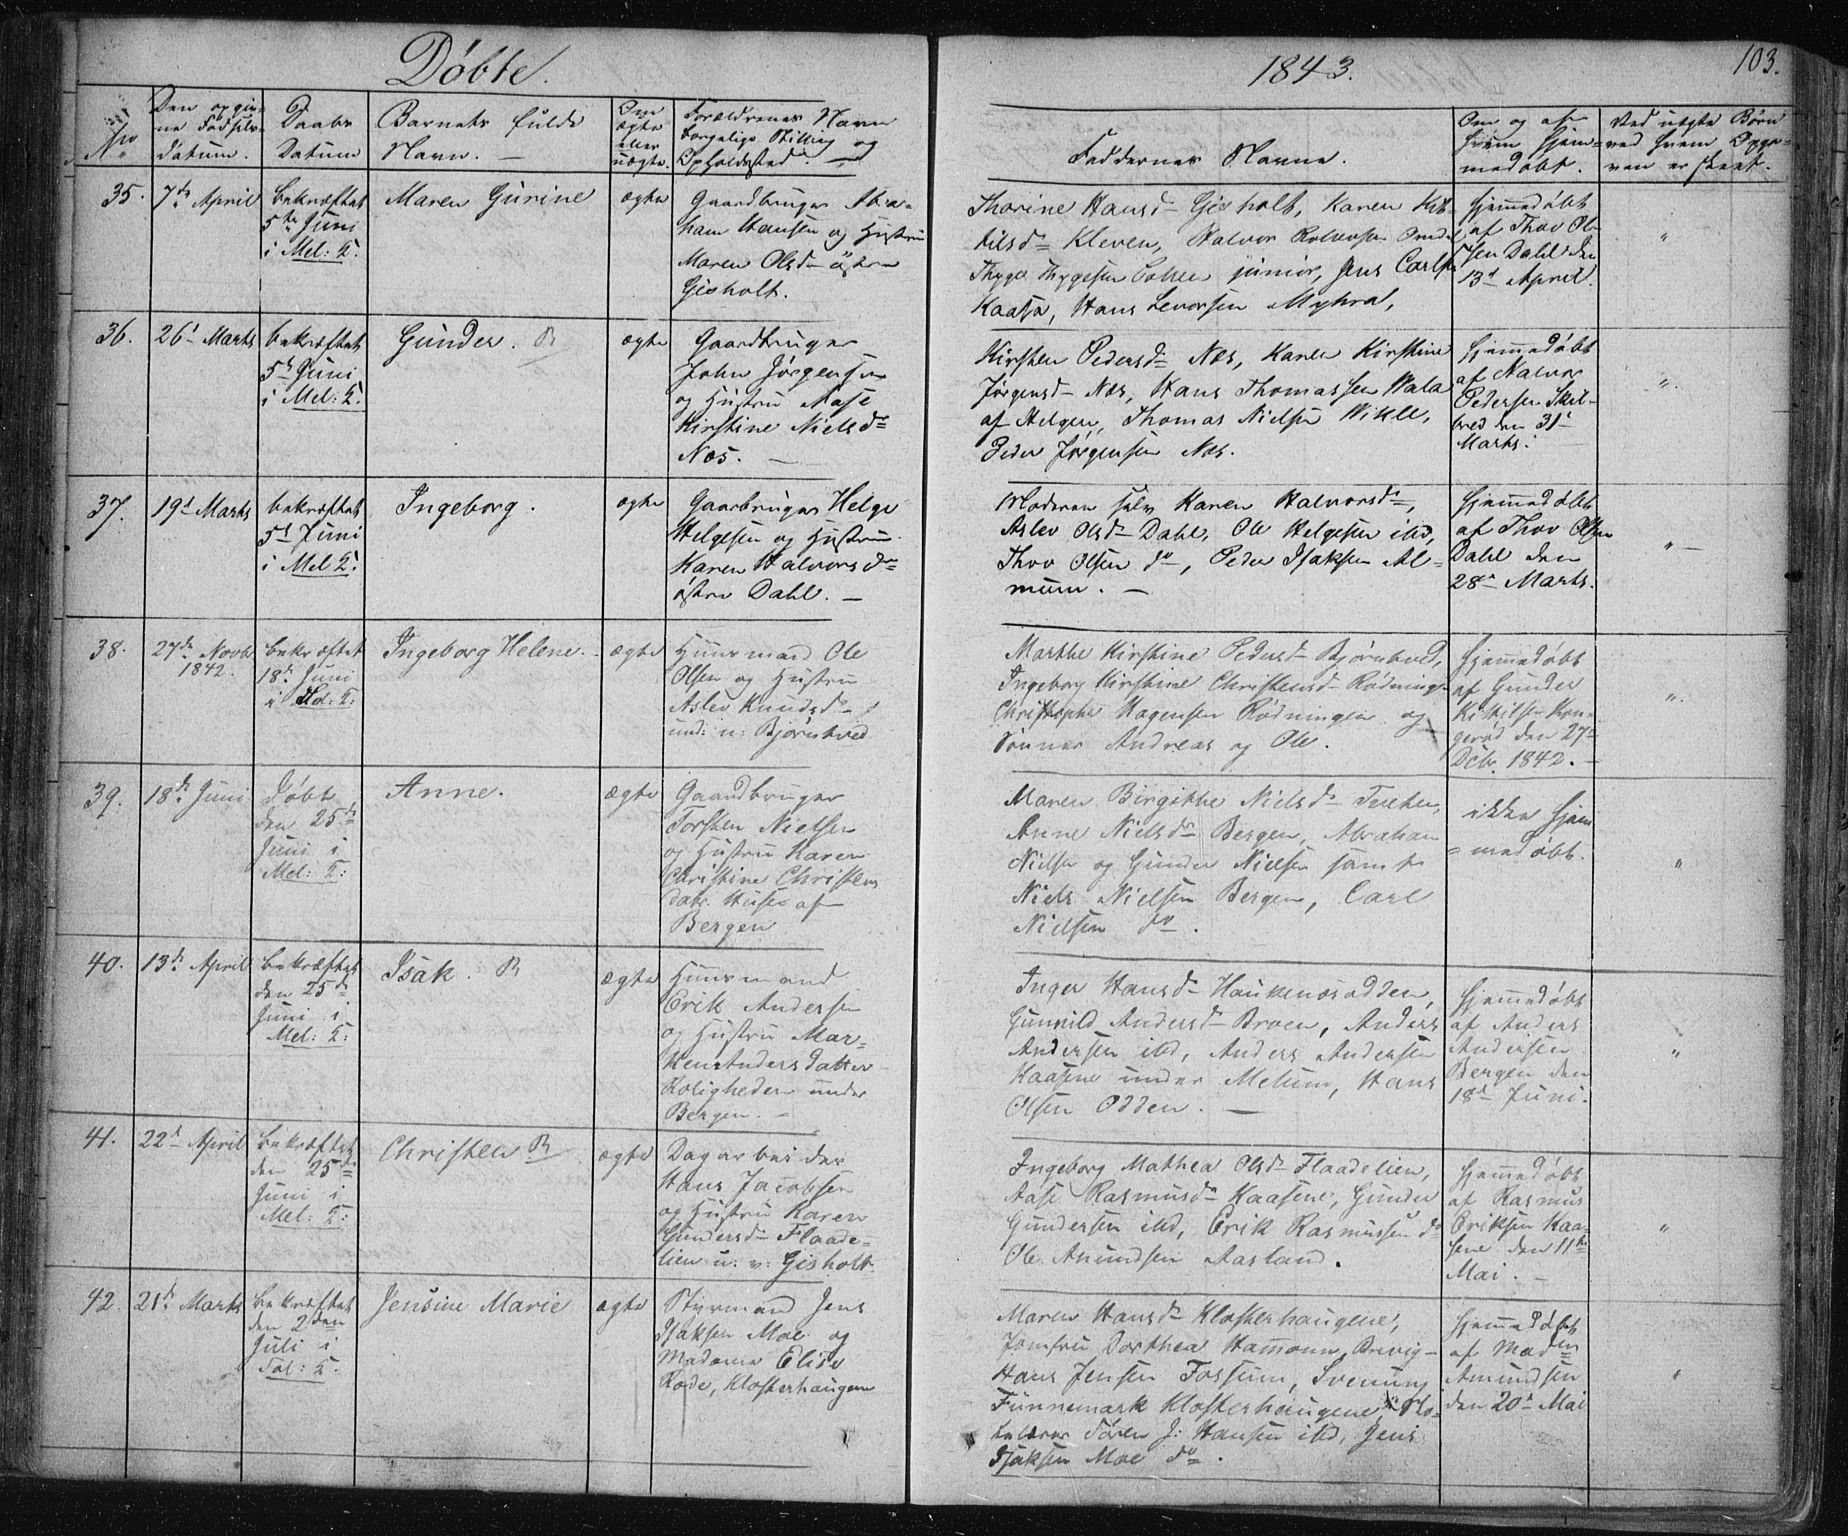 Døbte.
1843.
103.
No
Den opgiv-
ne Fødsels-
datum.
Daabs
Datum
Barnets fulde
Navn. —
Om
ægte
eller
uægte.
Forældrenes Navn
borgelige Stilling og
Opholdssted. —
Faddernes Navne.
Om og af
hvem hjem-
medøbt.
Ved uægte Børn
ved hvem Opga-
ven er skeet.
35.
7de April
bekræftet
5te Juni
i Mel: K.
Maren Gurine
ægte
Gaardbruger Abra-
ham Hansen og Hustru
Maren Olsd= østre
Gisholt.
Thorine Hansd= Gisholt, Karen Kit-
tilsd= Kleven, Halvor Rolvsen
Thyge Thygesen junior, Jens Carls
Kaasa, Hans Levorsen Myhra,
hjemmedøbt
af Thov Ol-
sen Dahl den
13de April.
"
36.
26de Marts
bekræftet
5te Juni
i Mel: K.
Gunder. R
ægte
Gaardbruger
John Jørgensen
og Hustru Aase
Kirstine Nielsdr
Næs. —
Kirsten Pedersd= Næs, Karen Kirstine
Jørgensd= Næs, Hans Thomassen Vala
af Helgen, Thomas Nielsen
Peder Jørgensen Næs.
hjemmedøbt
af Halvor
Pedersen Skil-
bred den 31te
Marts.
"
37.
19de Marts
bekræftet
5te Juni
i Mel K:
Ingeborg.
ægte
Gaarbruger Helge
Helgesen og Hustru
Karen Halvorsdr
østre Dahl. —
Moderen selv Karen Halvorsdr,
Aslev Olsd= Dahl, Ole Helgesen ibd,
Thov Olsen do, Peder Isaksen Me-
mum. —
hjemmedøbt
af Thov Olsen
Dahl den
28de Marts.
"
38.
27de Novbr
1842.
bekræftet
18de Juni
i Sol: K:
Ingeborg Helene.
ægte
Huusmand Ole
Olsen og Hustru
Aslev Knudsd=
und: n: Bjørntved
Marthe Kirstine Pedersd= Bjørntved,
Ingeborg Kirstine Christensd= Rødning-
Christopher Hagensen Rødningen og
Sønner Andreas og Ole.
hjemmedøbt
af Gunder
Kittilsen Kon-
gerød den 27de
Dcbr. 1842. —
"
39.
18de Juni
Døbt
den 25de
Juni i
Mel: K:
Anne.
ægte
Gaardbruger
Torsten Nielsen
og Hustru Karen
Christine Christens
datr. Huset af
Bergen
Maren Birgitthe Nielsdr
Anne Nielsdr Bergen, Abraham
Nielsen og Gunder Nielsen samt
Niels Nielsen Bergen, Carl
Nielsen do.
ikke hjem
= medøbt.
"
40.
13de April
bekræftet
den 25de
Juni i
Mel: K:
Isak. R
ægte
Huusmand
Erik Andersen
og Hustru Mar-
then Andersdatter
Roligheden under
Bergen. —
Inger Hansd= Haukenæsodden,
Gunnild Andersd= Broen, Anders
Andersen ibd, Anders Andersen
Kaasene under Melum, Hans
Olsen Odden. —
hjemmedøbt
af Anders
Andersen
Bergen den
18de Juni.
"
41.
22de April
bekræftet
den 25de
Juni i
Mel: K:
Christen R
ægte
Dagarbeider
Hans Jacobsen
og Hustru Karen
Gundersd= Flaade-
lien u: v: Gisholt
Ingeborg Mathea Olsd= Flaadelien,
Aase Rasmusd= Kaasene, Gunder
Gundersen ibd, Erik Rasmussen do
Ole Amundsen Aasland.
hjemmedøbt
af Rasmus
Eriksen Kaa-
sene den 11te
Mai. —
"
42.
21de Marts
bekræftet
den 2den
Juli i
Sol: K.
Jensine Marie
ægte
Styrmand Jens
Isaksen Moe og
Madame Elise
Rode, Klosterhaugene
Maren Hansd= Klosterhaugene,
Jomfru Dorthea Hamonn Brevig-
Hans Jensen Fossum, Svenung
Finnemark Klosterhaugene, Sko-
lelærer Søren J: Hansen ibd, Jens
Isaksen Moe do.
hjemmedøbt
af Madm
Amundsen
den 20de Mai
"